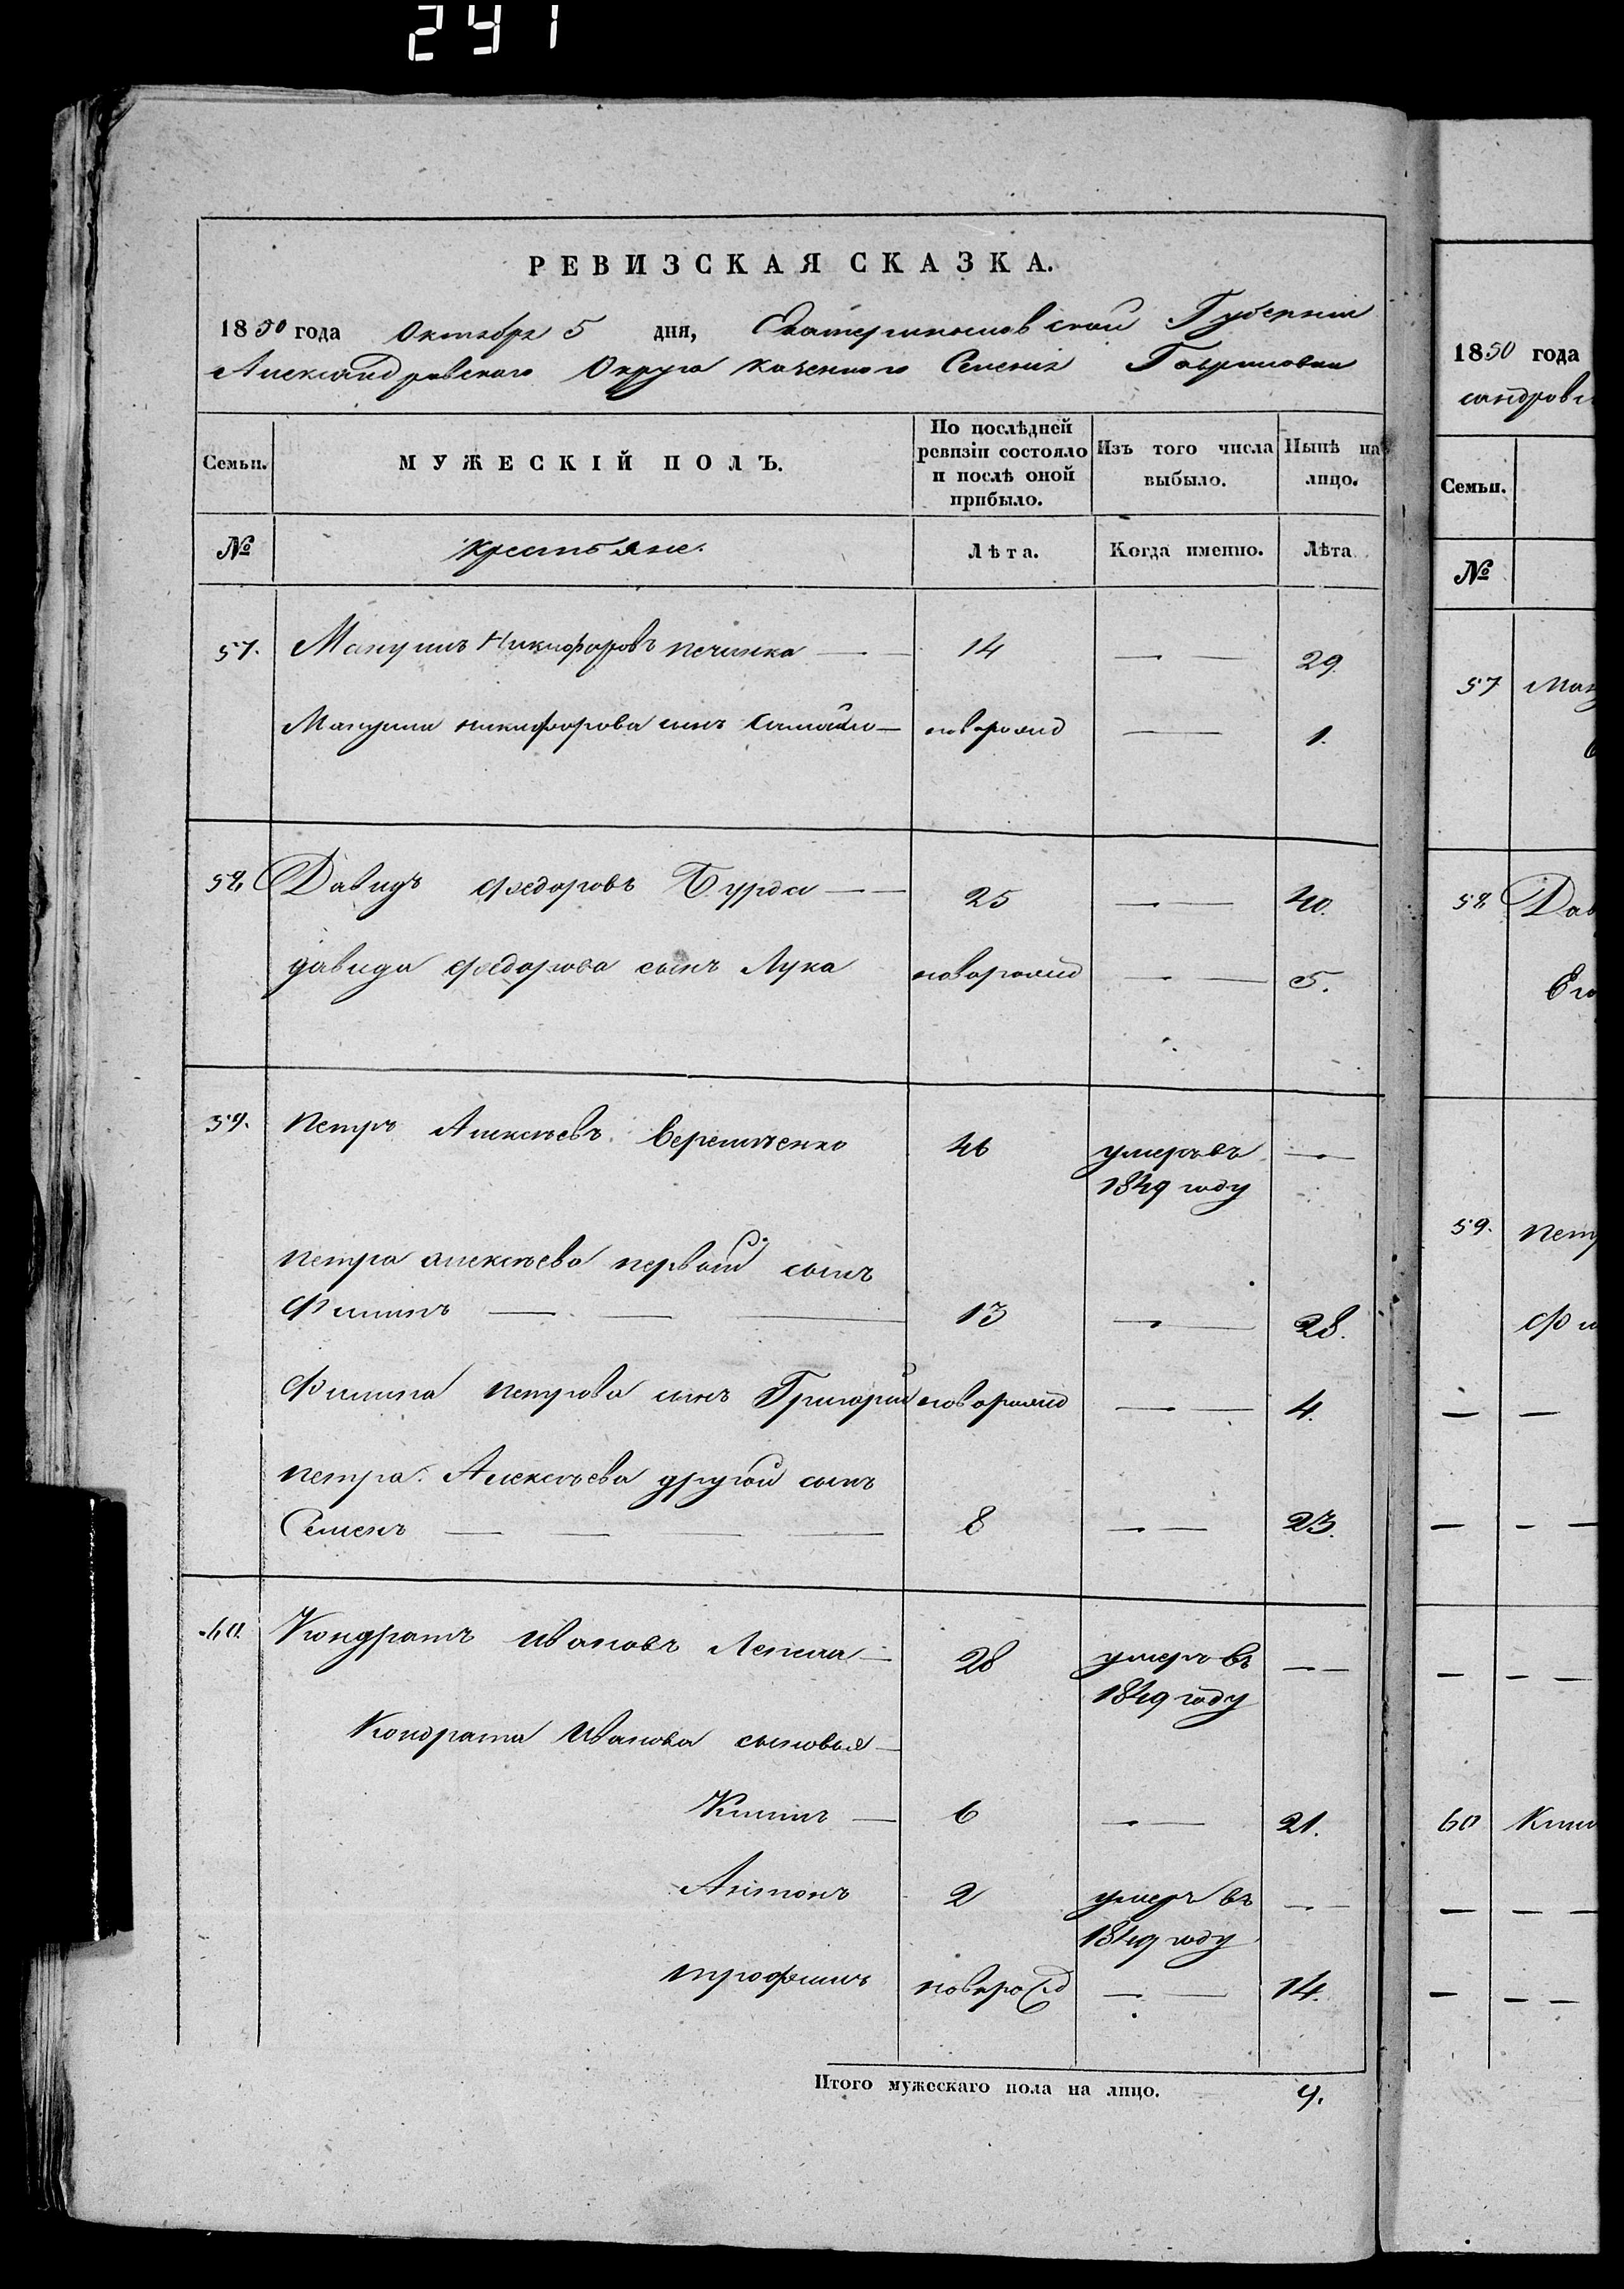 241
РЕВИЗСКАЯ СКАЗКА.
1850 года Октября 5 дня, Екатеринославской Губернии
Александровского Округа Казенного Селения Гавриловки
Семьи. МУЖЕСКІЙ ПОЛЪ. По послѣдней ревизіи состояло и послѣ оной прибыло. Изъ того числа выбыло. Нынѣ на лицо.
№ Крестьяне. Лѣта. Когда именно. Лѣта
57. Мануилъ Никифоровъ Печинка — — 14 — — 29.
Мануила Никифорова сынъ Самойло — новорожд — — 1.
58. Давидъ Федоровъ Бурда — — 25 — — 40.
Давида Федорова сынъ Лука новорожд — — 5.
59. Петръ Алексѣевъ 46 умеръ въ —
1849 году
Петра Алексѣева первый сынъ
Филипъ — — — 13 — — 28.
Филипа Петрова сынъ Григорий новорожд — — 4.
Петра Алексѣева другой сынъ
Семенъ — — — — 8 — — 23.
60. Кондратъ Ивановъ Лепеха — 28 умеръ въ — —
1849 году
Кондрата Иванова сыновья —
Климъ — 6 — — 21.
Антонъ 2 умеръ въ — —
1849 году
Трофимъ новорожд — — 14.
Итого мужескаго пола на лицо. 9.
1850 года
сандровс
Семьи.
№
57 Ман
58 Дав
Его
59. Петр
Фи
— —
— — —
— — —
60 Клим
— — —
— — —